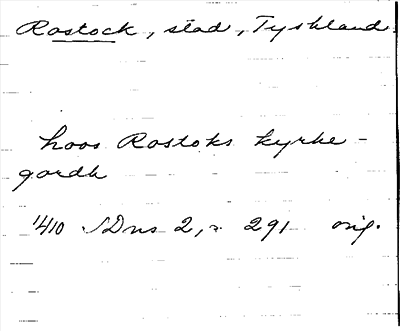 Rostock, stad, Tyskland.
hoos Rostoks kyrke-
gardh
1410 SDns 2, s 291 orig.